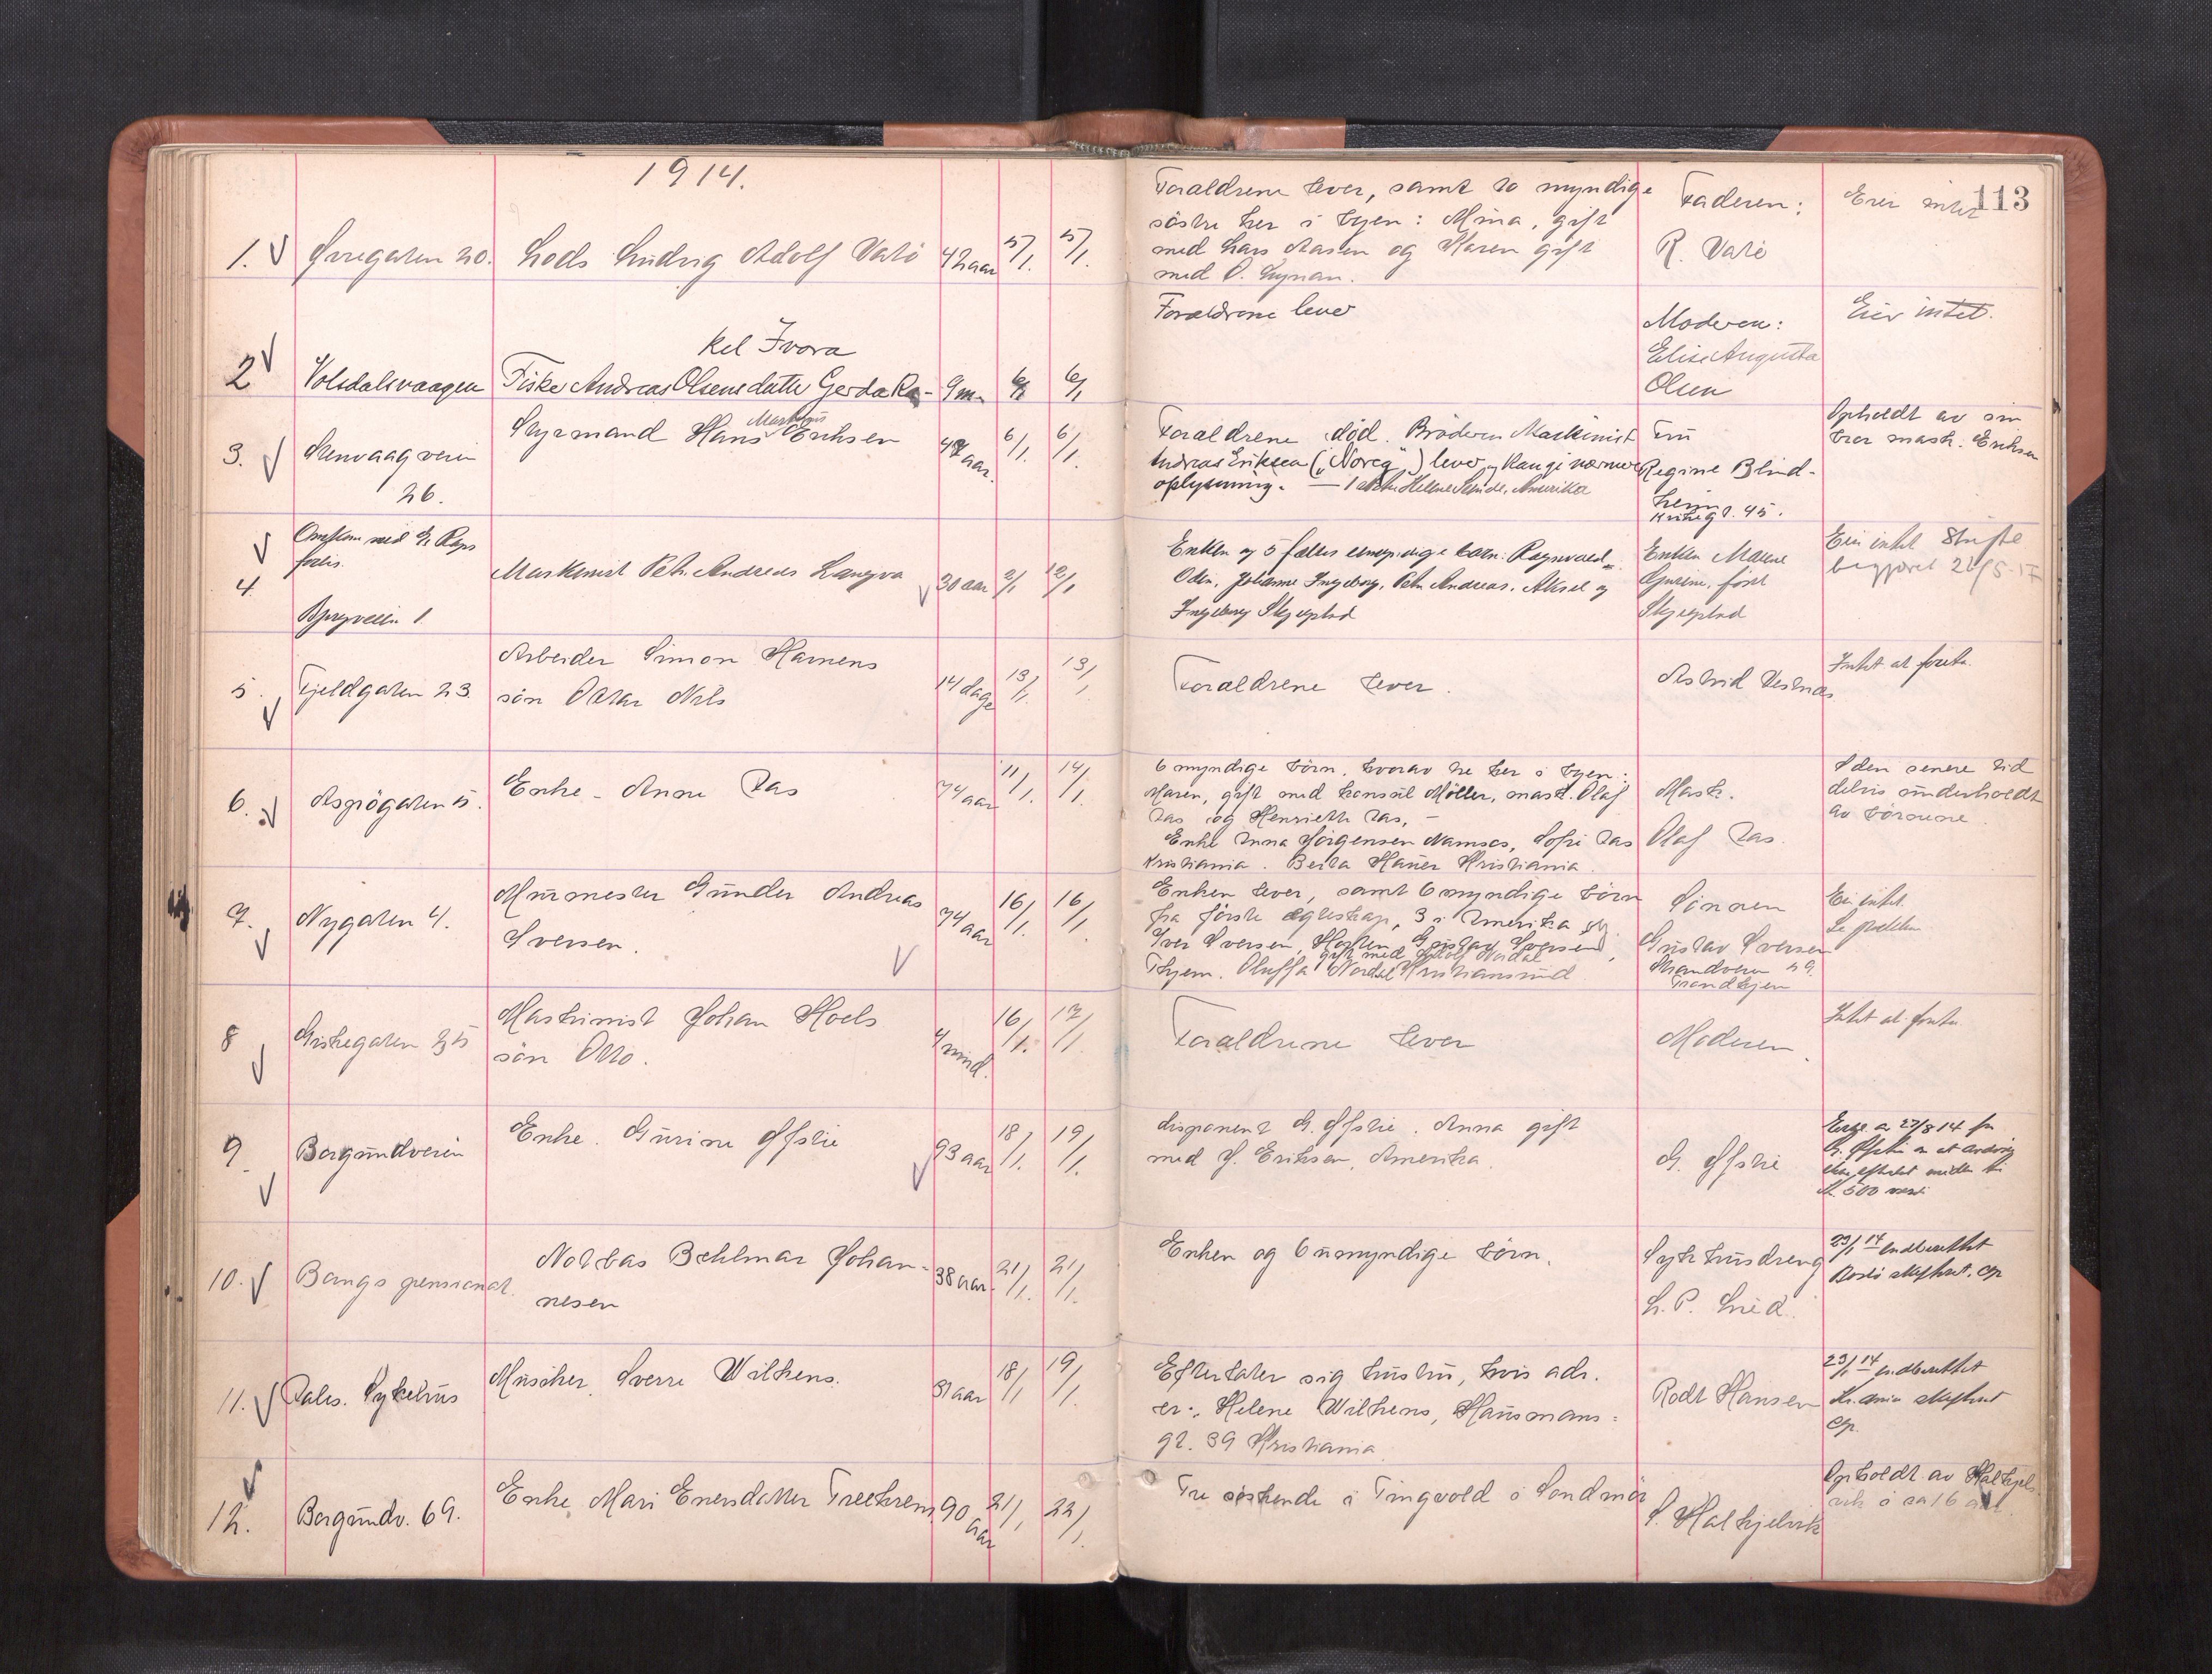 1914.
113
1. Ørregaten 20. Lods Ludvig Adolf Vatö 42 aar 5/1. 5/1.
Forældrene lever, samt to myndige
söstre her i byen: Mina, gift
med Lars Aasen og Karen gift
med O. Nyman.
Faderen:
R. Vatö
Eier intet
2 Volsdalsvaagen
kel Ivara
Fisker Andreas Olsens datter Gerda Ra- 9 m. 6/1 6/1
Forældrene lever
Moderen:
Elise Augusta
Olsen
Eier intet.
3. Stenvaagveien
26.
Styrmand Hans Markus Eriksen 47 aar. 6/1. 6/1.
Forældrene död. Bröderen Maskinist
Andreas Eriksen ("Noreg") lever, kan gi nærmere
oplysning. — 1 søster Helene Sunde, Amerika
Fru
Regine Blind-
heim
Kirkegt. 45.
Opholdt av sin
bror mask. Eriksen
4. Omkom med
forlis.
Bjergveien 1.
Maskinist Petr Andreas Langva 30 aar 2/1 12/1
Enken og 5 fælles umyndige barn: Ragnvald
Odin, Johanne Ingeborg, Petr Andreas, Aksel og
Ingeborg Skjegstad
Enken Marene
Gurine, født
Skjegstad
Eier intet Skifte
begjæret
5. Fjeldgaten 23.
Arbeider Simon Hamens
sön Oskar Nils 14 dage 13/1. 13/1
Forældrene lever.
Astrid Vestnæs
Intet at foreta.
6. Aspögaten 5. Enke - Anne Aas 74 aar 11/1. 14/1.
6 myndige börn, hvorav tre her i byen:
Maren, gift med konsul Möller, mask. Olaf
Aas og Henriette Aas, -
Enke Anna Jörgensen Namsos, Sofie Aas
Kristiania. Berta Hauer Kristiania.
Mask.
Olaf Aas.
I den senere tid
delvis underholdt
av börnene
7. Nygaten 4.
Murmester Gunder Andreas
Iversen. 74 aar 16/1. 16/1.
Enken lever, samt 6 myndige börn
fra förste egteskap, 3 i Amerika og
Iver Iversen, Gustav Iversen,
Thjem. Oluffa gift med Adolf Nordal Kristianssund
Sönnen
Gustav Iversen
Strandveien 29.
Trondhjem
Eier intet.
8 Kirkegaten 35
Maskinist Johan Hoels
sön Otto. 4 mnd. 16/1. 17/1.
Forældrene lever
Moderen.
Intet at foreta
9. Borgundveien Enke. Gurine Offstie 93 aar 18/1. 19/1.
disponent G. Offstie. Anna gift
med J. Eriksen, Amerika.
G. Offstie
10. Bangs pensionat.
Notbas Behlmar Johan-
nesen 38 aar. 21/1. 21/1.
Enken og 6 umyndige börn.
Sykehusdreng
L. P. Lied.
23/1 14 indberettet
Bodö skifteret.
11. Aales. Sykehus Musiker. Sverre Wilkens. 31 aar 18/1 19/1.
Efterlater sig hustru, hvis adr.
er: Helene Wilkens, Hausmans-
gt. 39 Kristiania
Rodt Hansen
23/1 14 indberettet
Kr.ania skifteret
12. Borgundv. 69. Enke Mari Enersdatter Treekrem 90 aar 21/1, 22/1.
Tre söskende i Tingvold i Sondmör
S. Halkjelsvik
Opholdt av Halkjels-
vik i ca 16 aar.